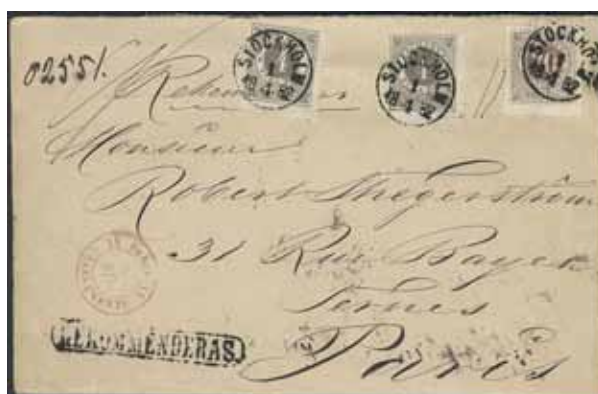 STOCKHOLM
1
4 82
STOCKHOLM
1
18 4 82
STOCKHOLM
02551.
Monsieur
Robert Thegerström
31 Rue Bayen
Ternes
Paris
REKOMMENDERAS.